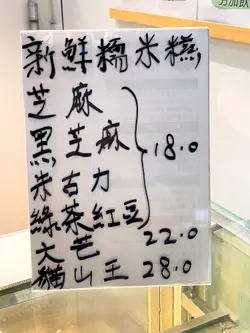 另加飲
新鮮糯米糍
芝麻
黑芝麻 18.0
朱古力
綠茶紅豆
大芒 22.0
貓山王 28.0